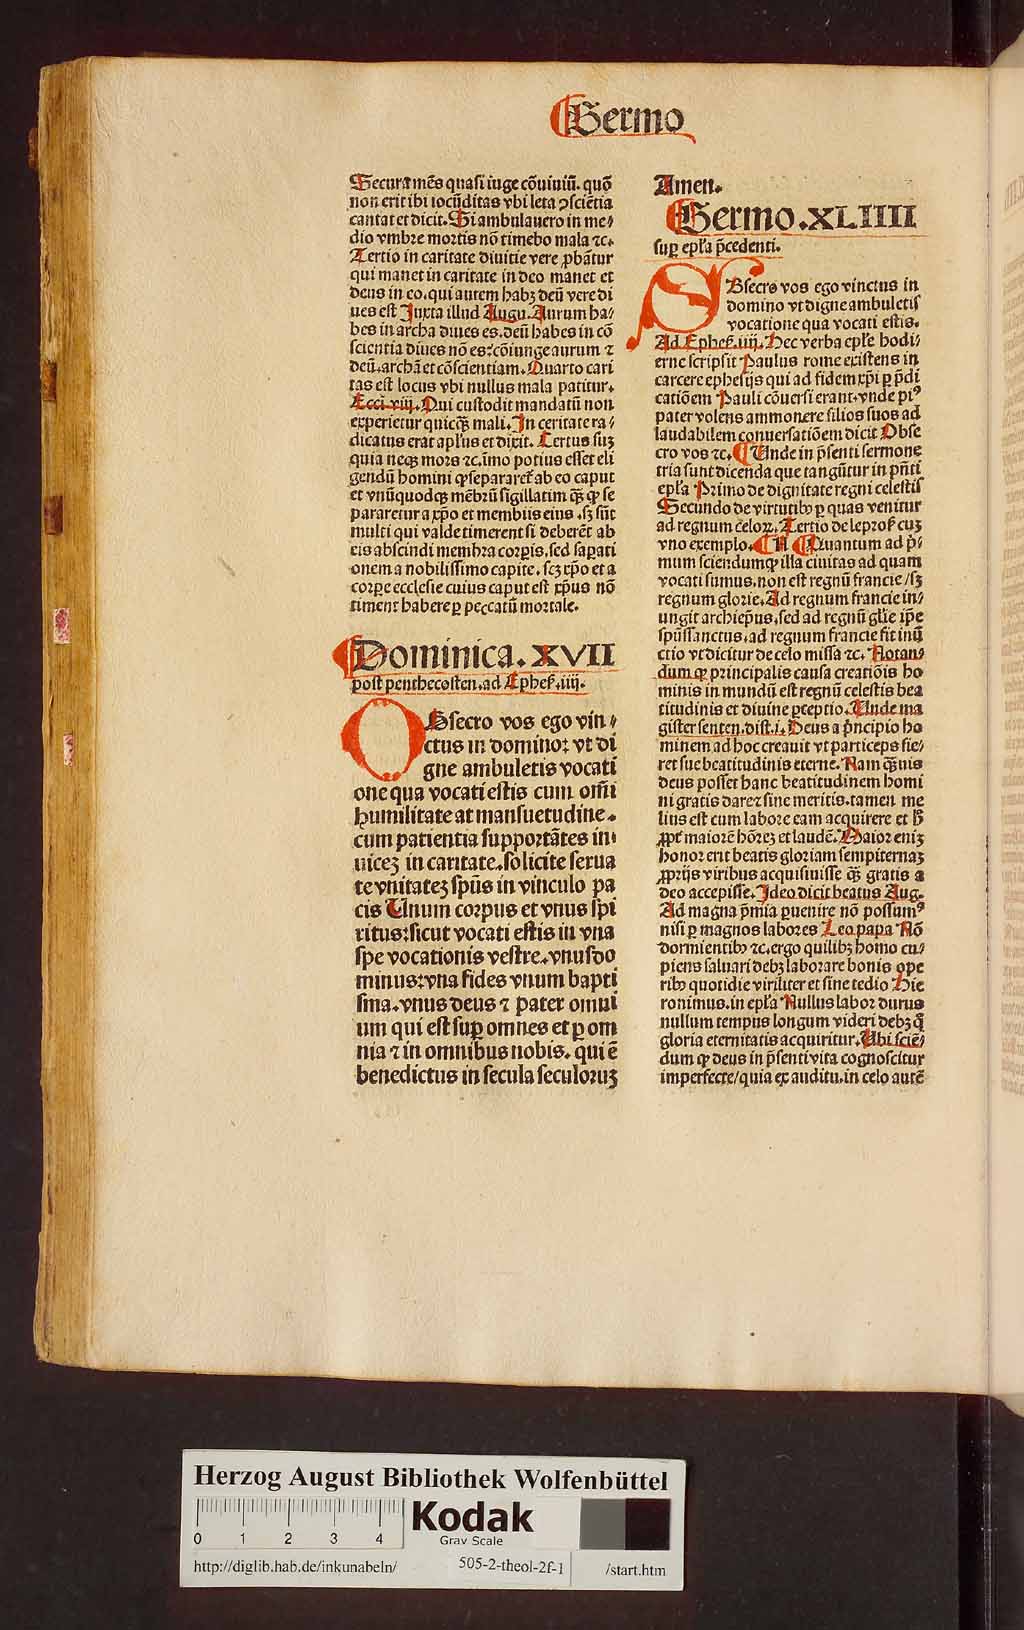 Sermo
Secura mēs quasi iuge cōuiuiū. quō
non erit ibi iocūditas vbi leta ꝯsciētia
cantat et dicit. Si ambulauero in me⸗
dio vmbre mortis nō timebo mala ⁊c.
Tertio in caritate diuitie vere ꝓbātur
qui manet in caritate in deo manet et
deus in eo. qui autem habꝫ deū vere di
ues est Juxta illud Augu. Aurum ha⸗
bes in archa diues es. deū habes in cō
scientia diues nō es? cōiunge aurum ⁊
deū. archā et cōscientiam. Quarto cari
tas est locus vbi nullus mala patitur.
Ecci. viij. Qui custodit mandatū non
experietur quicqꝫ mali. In ceritate ra⸗
dicatus erat apl̄us et dixit. Certus suꝫ
quia neqꝫ mors ⁊c. imo potius esset eli
gendū homini ꝙ separaret̉ ab eo caput
et vnūquodqꝫ mēbrū sigillatim qꝫ ꝙ se
pararetur a xp̄o et membris eius. sꝫ sūt
multi qui valde timerent si deberēt ab
eis abscindi membra corꝑis. sed saꝑati
onem a nobilissimo capite. scꝫ xp̄o et a
corꝑe ecclesie cuius caput est xp̄us nō
timent habere ꝑ peccatū mortale.
Dominica. XVII
post penthecosten. ad Ephes. iiij.
OBsecro vos ego vin⸗
ctus in domino: vt di
gne ambuletis vocati
one qua vocati estis cum om̄i
humilitate at mansuetudine.
cum patientia supportātes in⸗
uiceꝫ in caritate. solicite serua
te vnitateꝫ spūs in vinculo pa
cis Unum corpus et vnus spi
ritus: sicut vocati estis in vna
spe vocationis vestre. vnus do
minus: vna fides vnum bapti
sma. vnus deus ⁊ pater omni
um qui est suꝑ omnes et ꝑ om
nia ⁊ in omnibus nobis. qui ē
benedictus in secula seculoruꝫ
Amen.
Sermo. XLIIII
suꝑ epl̄a p̄cedenti.
OBsecro vos ego vinctus in
domino vt digne ambuletis
vocatione qua vocati estis.
Ad Ephes. iiij. Hec verba epl̄e hodi⸗
erne scripsit Paulus rome existens in
carcere ephesijs qui ad fidem xp̄i ꝑ p̄di
catiōem Pauli cōuersi erant. vnde piꝰ
pater volens ammonere filios suos ad
laudabilem conuersatiōem dicit Obse
cro vos ⁊c. Unde in p̄senti sermone
tria sunt dicenda que tangūtur in p̄nti
epl̄a Primo de dignitate regni celestis
Secundo de virtutibꝰ ꝑ quas venitur
ad regnum celoꝝ. Tertio de lepros̉ cuꝫ
vno exemplo. A Quantum ad p̄⸗
mum sciendum ꝙ illa ciuitas ad quam
vocati sumus. non est regnū francie / sꝫ
regnum glorie. Ad regnum francie in⸗
ungit archiep̄us. sed ad regnū gl̄ie ip̄e
spūssanctus. ad regnum francie fit inū
ctio vt dicitur de celo missa ⁊c. Notan⸗
dum ꝙ principalis causa creatiōis ho
minis in mundū est regnū celestis bea
titudinis et diuine ꝑceptio. Unde ma
gister senten. dist. i. Deus a p̄ncipio ho
minem ad hoc creauit vt particeps fie⸗
ret sue beatitudinis eterne. Nam qꝫuis
deus posset hanc beatitudinem homi
ni gratis dare ⁊ sine meritis. tamen me
lius est cum labore eam acquirere et h̄
ꝓpt̉ maiorē hōreꝫ et laudē. Maior eniꝫ
honor erit beatis gloriam sempiternaꝫ
ꝓprijs viribus acquisiuisse qꝫ gratis a
deo accepisse. Ideo dicit beatus Aug.
Ad magna p̄mia ꝑuenire nō possumꝰ
nisi ꝑ magnos labores Leo papa Nō
dormientibꝰ ⁊c. ergo quilibꝫ homo cu⸗
piens saluari debꝫ laborare bonis ope
ribꝰ quotidie viriliter et sine tedio Hie
ronimus. in epl̄a Nullus labor durus
nullum tempus longum videri debꝫ q̄
gloria eternitatis acquiritur. Ubi sciē⸗
dum ꝙ deus in p̄senti vita cognoscitur
imperfecte / quia ex auditu. in celo autē
Herzog August Bibliothek Wolfenbüttel
0 1 2 3 4
Kodak
Gray Scale
http://diglib.hab.de/inkunabeln/ 505-2-theol-2f-1 /start.htm